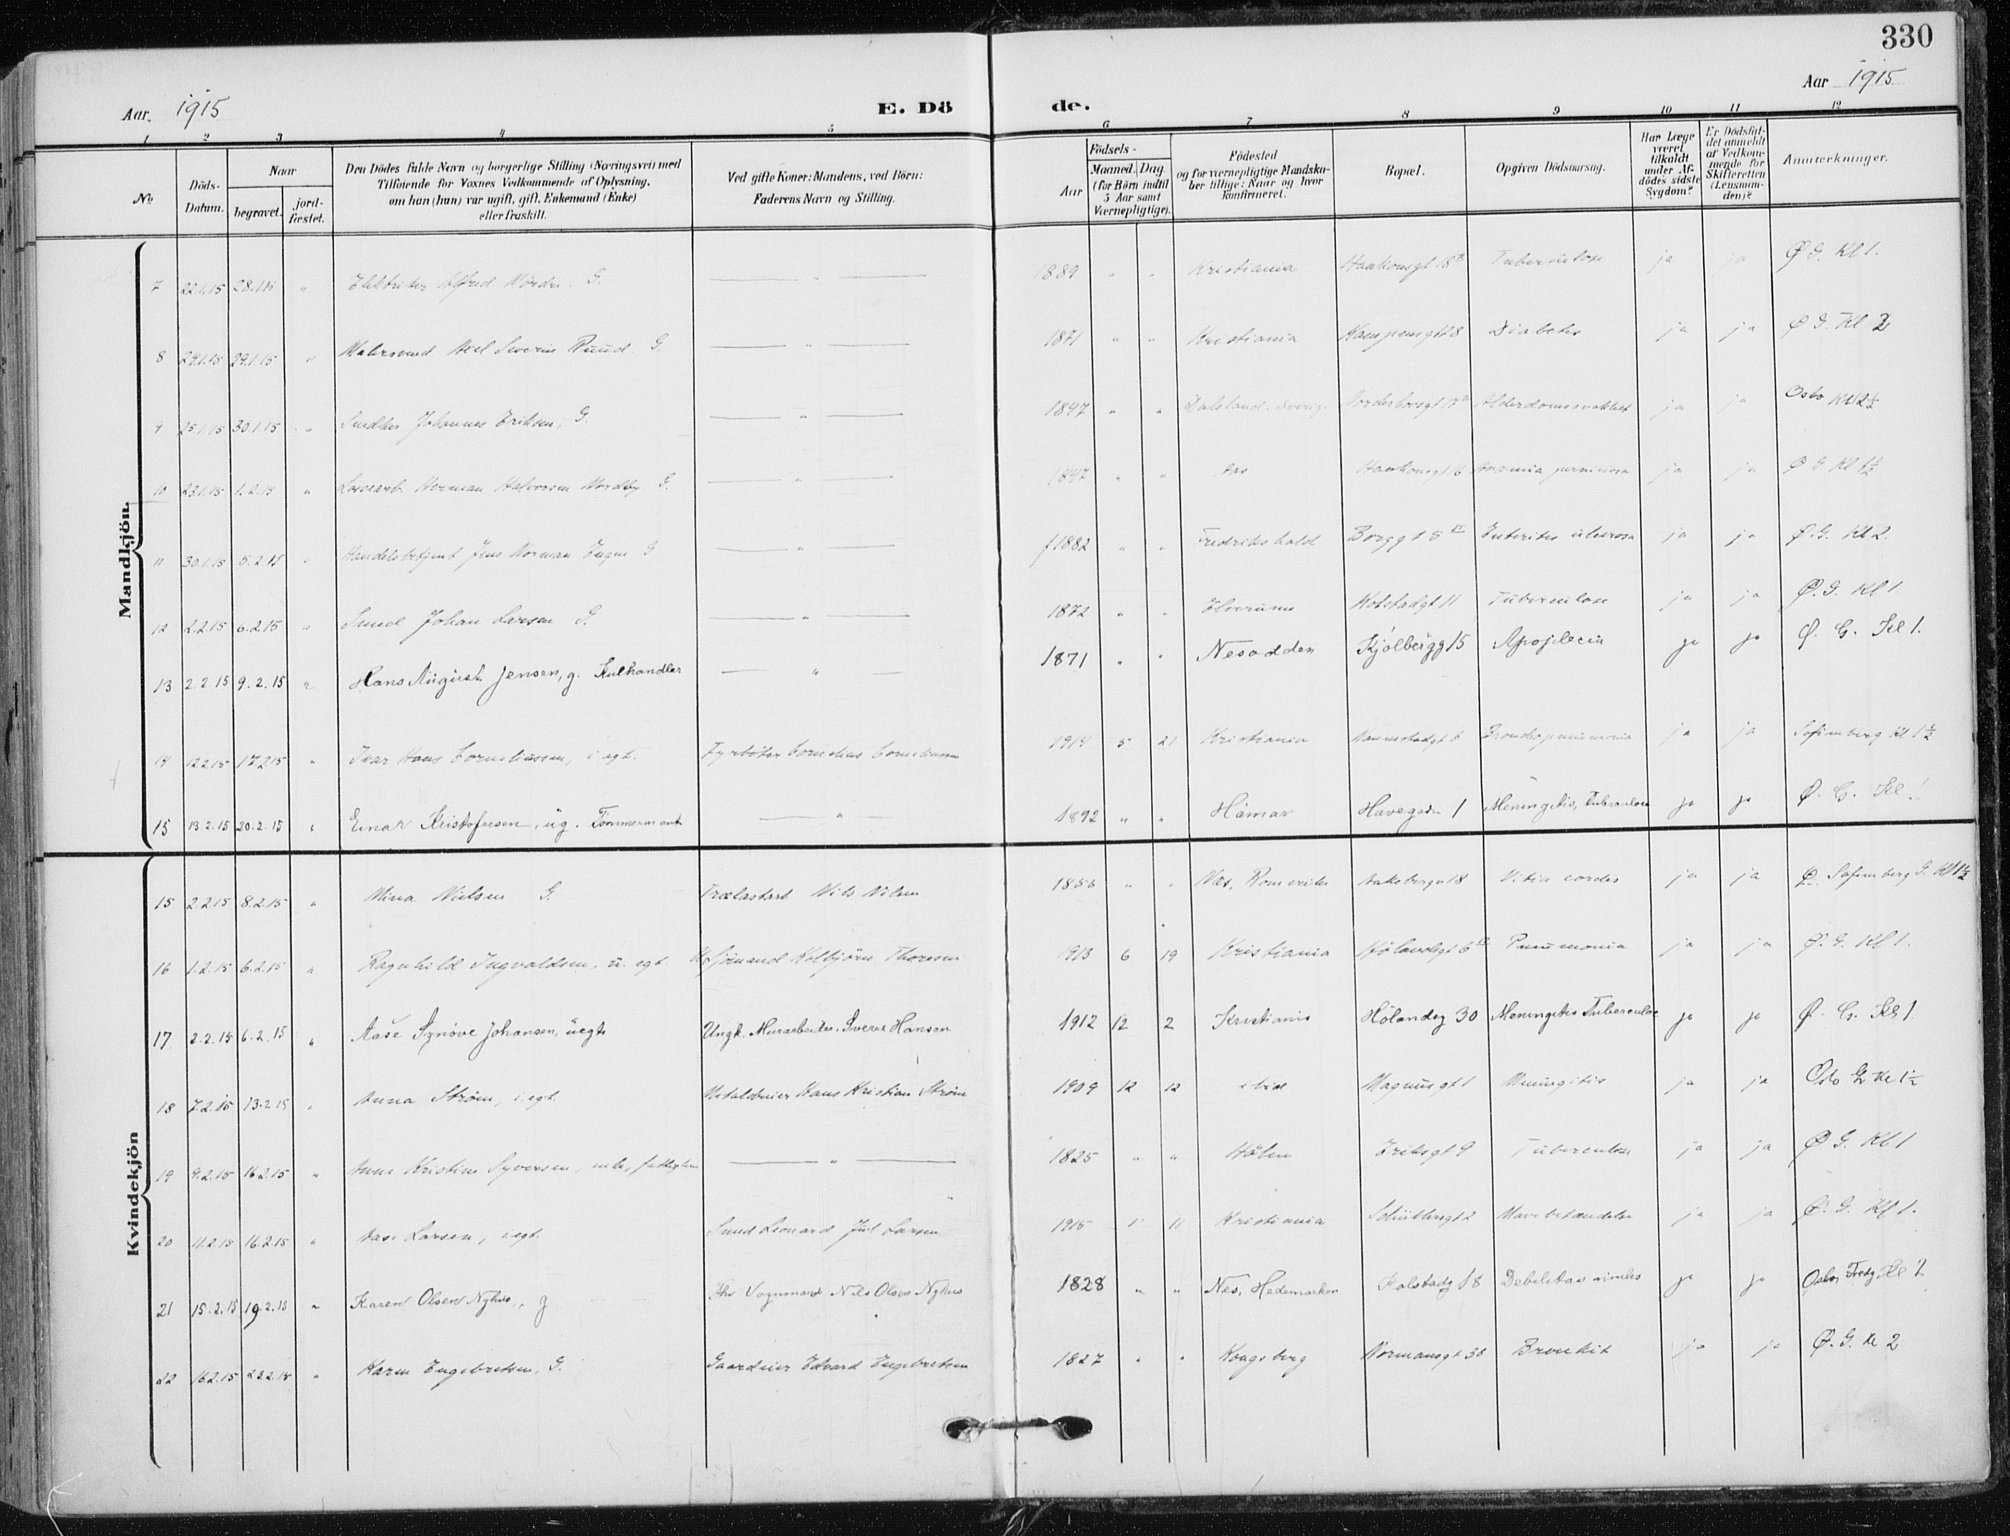 330
Aar 1915
E. Döde.
Aar 1915
1 2 3 4 5 6 7 8 9 10 11 12
No
Döds-Datum.
Naar
begravet.
jordfæstet.
Den Dödes fulde Navn og borgerlige Stilling (Næringsvei) med
Tilföiende for Voxnes Vedkommende af Oplysning,
om han (hun) var ugift, gift, Enkemand (Enke)
eller fraskilt.
Ved gifte Koner: Mandens, ved Börn:
Faderens Navn og Stilling.
Födsels-
Aar
Maaned. Dag.
(for Börn indtil
5 Aar samt
Værnepligtige).
Födested
og for værnepligtige Mandskaber tillige: Naar og hvor
konfirmeret.
Bopæl.
Opgiven Dödsaarsag.
Har Læge været tilkaldt under Afdödes sidste Sygdom?
Er Dödsfaldet anmeldt af Vedkommende for Skifteretten (Lensmanden)?
Anmerkninger.
Mandkjön.
7 22.1.15 28.1.15 " Alfred G. — " — 1889 " " Kristiania Haakonsgt 18 Tuberculose ja ja Ø G. Kl 1.
8 24.1.15 29.1.15 " Axel Severin Ruud G. — " — 1871 " " Kristiania Kampensgt 18 Diabetes ja ja Ø G. Kl 2
9 25.1.15 30.1.15 " Snedker Johannes Eriksen, G. — " — 1847 " " Dalsland, Sverige Norderhovsgt Alderdomssvakhet ja ja Oslo Kl 2½
10 23.1.15 1.2.15 " Herman Halvorsen Nordby G. — " — 1847 " " Aas Haakonsgt 6 Anæmia perniciosa ja ja Ø G Kl 1½
11 30.1.15 5.2.15 " Handelsbetjent Jens Norman G — " — f 1882 " " Fredrikshald Borgg 18 Enteritis ulcerosa ja ja Ø. G. Kl 2.
12 2.2.15 6.2.15 " Smed Johan Larsen G. — " — 1872 " " Elverum Kolstadgt 11 Tuberculose ja ja Ø. G. Kl 1
13 2.2.15 9.2.15 " Hans August Jensen, g. Kulhandler — " — 1871 " " Nesodden Kjølbergg 15 Apoplecia ja ja Ø. G. Kl 1.
14 12.2.15 17.2.15 " Ivar Hans Corneliussen, i egt. Fyrbøter Cornelius Corneliussen 1914 5 21 Kristiania 6 Bronchopneumonia ja ja Sofienberg Kl 1½
15 13.2.15 20.2.15 " Einar Kristofersen, ug. Tømmermand — " 1892 " " Hamar Havegaden 1 Meningitis, Tuberculose ja ja Ø. G. Kl 1
Kvindekjön
15 2.2.15 8.2.15 " Mina Nielsen G. Trælastarb Nils Nilsen 1856 " " Nes, Romerike 18 Vitia cordis ja ja Ø. Sofienberg G. Kl 1½
16 1.2.15 6.2.15 " Ragnhild Ingvaldsen, u. egt. Sjømand Kolbjørn Thoresen 1913 6 19 Kristiania Hølandsgt 6 Pneumonia ja ja Ø. G. Kl 1.
17 2.2.15 6.2.15 " Aase Synøve Johansen, uegte Ungk. Murarbeider Sverre Hansen 1912 12 2 Kristiania Hølandsg 30 Meningitis Tuberculose ja ja Ø. G. Kl 1
18 7.2.15 13.2.15 " Anna Strøm, i egt. Hans Kristian Strøm 1909 12 12 ibid Magnusgt 1 Meningitis ja ja Oslo G Kl 1½
19 9.2.15 16.2.15 " Anne Kristine Syversen, enke, — " — 1825 " " Hølen Eriksgt 9 Tuberculose ja ja Ø G. Kl 1
20 11.2.15 16.2.15 " Aase Larsen, i egt. Smed Leonard Jul Larsen 1915 1 11 Kristiania 2 Mavebetændelse ja ja Ø. G. Kl 1.
21 15.2.15 19.2.15 " Karen Olsen Nyhus, g Vognmand Nils Olsen Nyhus 1828 " " Nes, Hedemarken Kolstadg 18 Debilitas ja ja Oslo, Fredg Kl 2
22 16.2.15 23.2.15 " Karen Engebretsen, G. Gaardeier Edvard Engebretsen 1827 " " Kongsberg Normansgt 38 Bronkit ja ja Ø. G. Kl 2